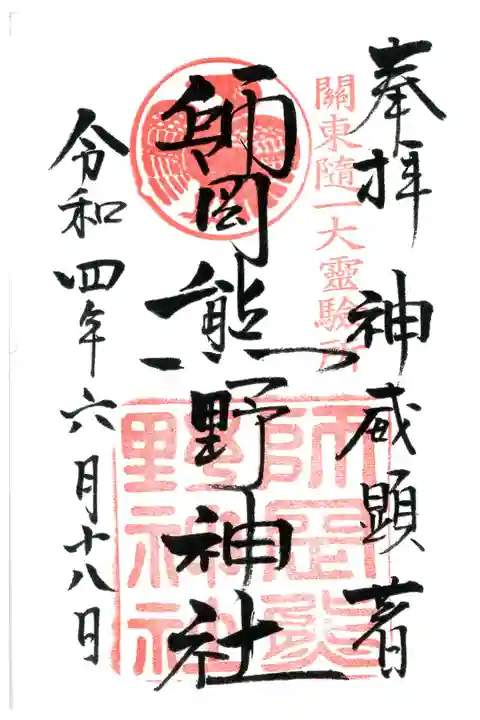 奉拝 神威顕著
關東隨一大靈驗所
師岡熊野神社
師岡熊
野神社
令和四年六月十八日